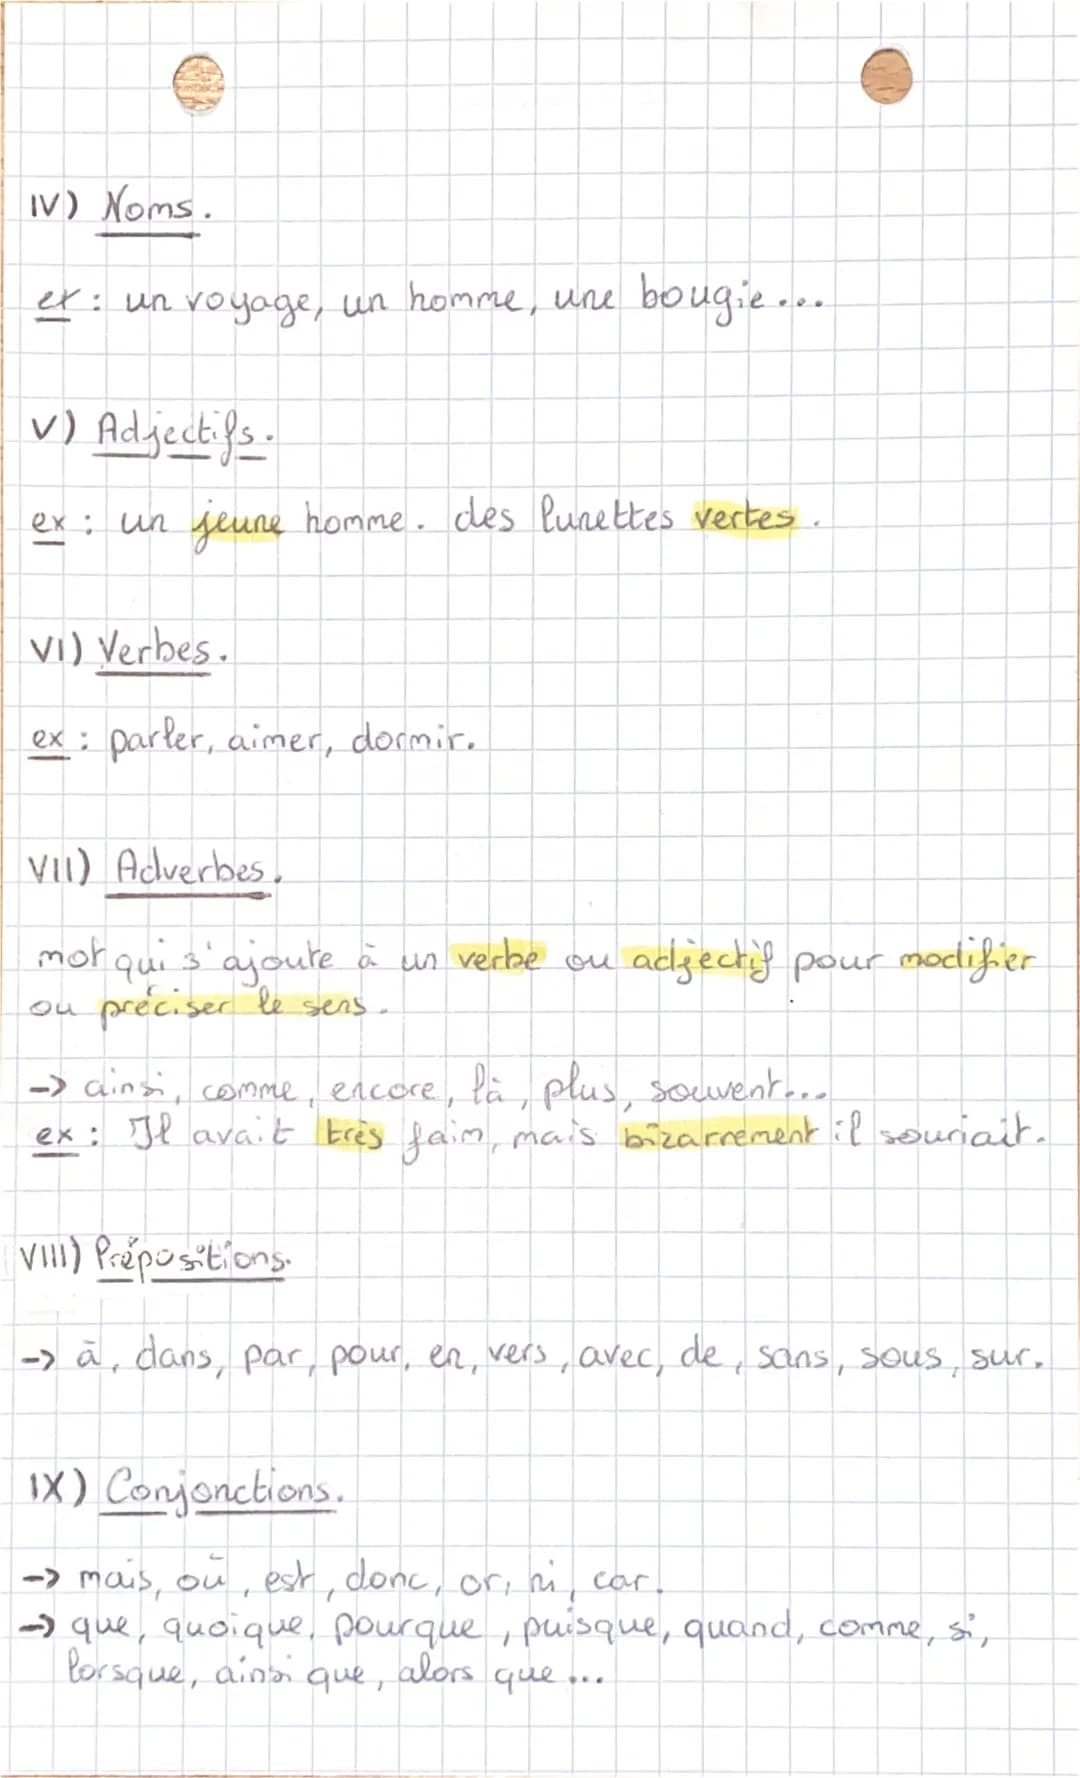 IV) Noms.
ex : un voyage, un homme, une bougie...
V) Adjectifs.
ex : un jeune homme. des lunettes vertes.
VI) Verbes.
ex : parler, aimer, dormir.
VII) Adverbes.
mot qui s'ajoute à un verbe ou adjectif pour modifier
ou préciser le sens.
-> ainsi, comme, encore, là, plus, souvent...
ex : Il avait très faim, mais bizarrement il souriait.
VIII) Prépositions.
-> à, dans, par, pour, en, vers, avec, de, sans, sous, sur.
IX) Conjonctions.
-> mais, où, est, donc, or, ni, car.
-> que, quoique, pourque, puisque, quand, comme, si,
lorsque, ainsi que, alors que...